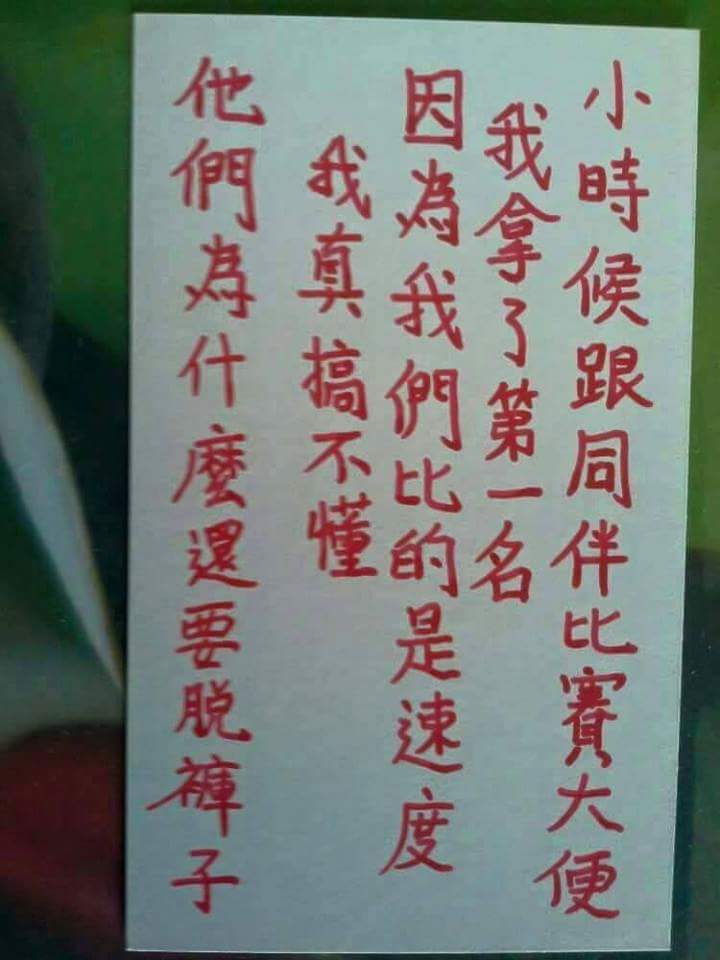 小時候跟同伴比賽大便
我拿了第一名
因為我們比的是速度
我真搞不懂
他們為什麼還要脫褲子